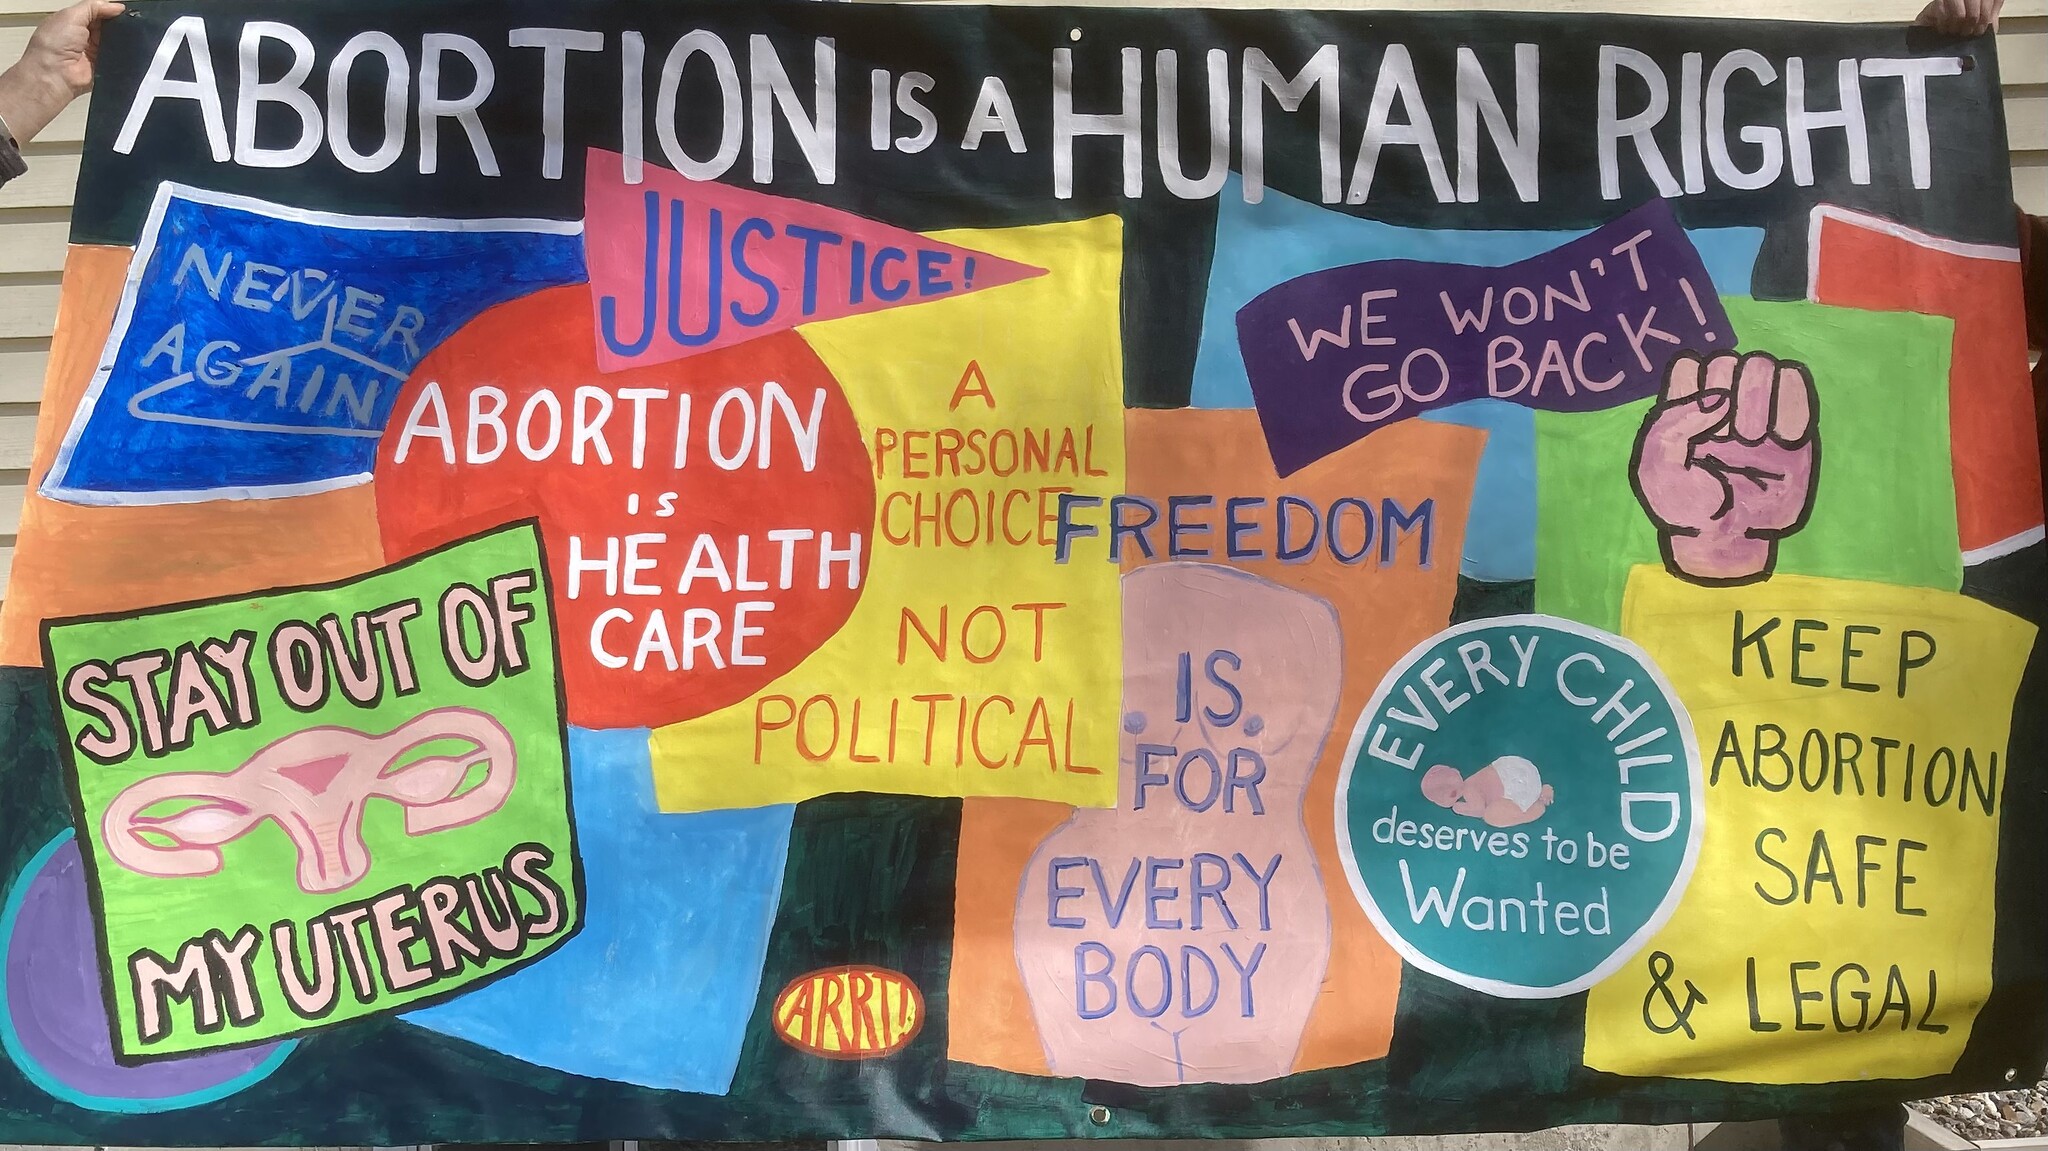 ABORTION IS A HUMAN RIGHT
NEVER
AGAIN
JUSTICE!
ABORTION
IS
HEALTH
CARE
A
PERSONAL
CHOICE
NOT
POLITICAL
WE WON'T
GO BACK!
STAY OUT OF
MY UTERUS
ARRT!
FREEDOM
IS
FOR
EVERY
BODY
EVERY CHILD
deserves to be
Wanted
KEEP
ABORTION
SAFE
& LEGAL